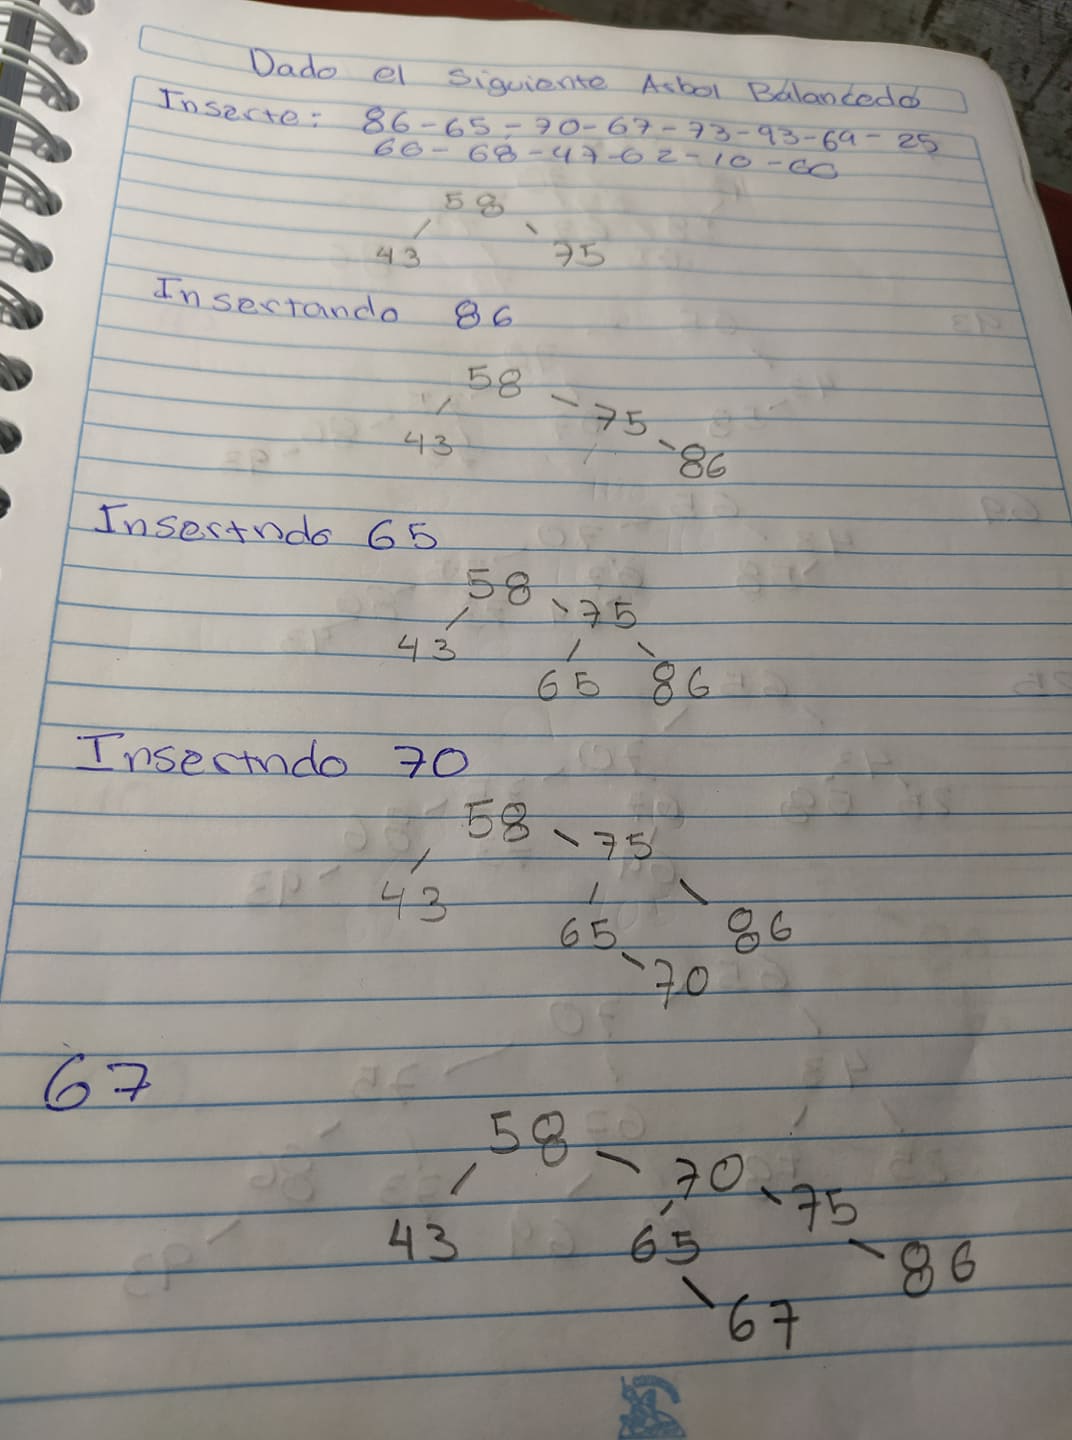 Dado el siguiente Arbol Balancedo
Inserte: 86-65-70-67-73-93-69-25
66-68-47-62-10-60
58
43 75
Insertando 86
58
75
43
86
Insertndo 65
58
75
43
65 86
Insertndo 70
58
75
43
65 86
70
67
58
70
75
43 65
86
67